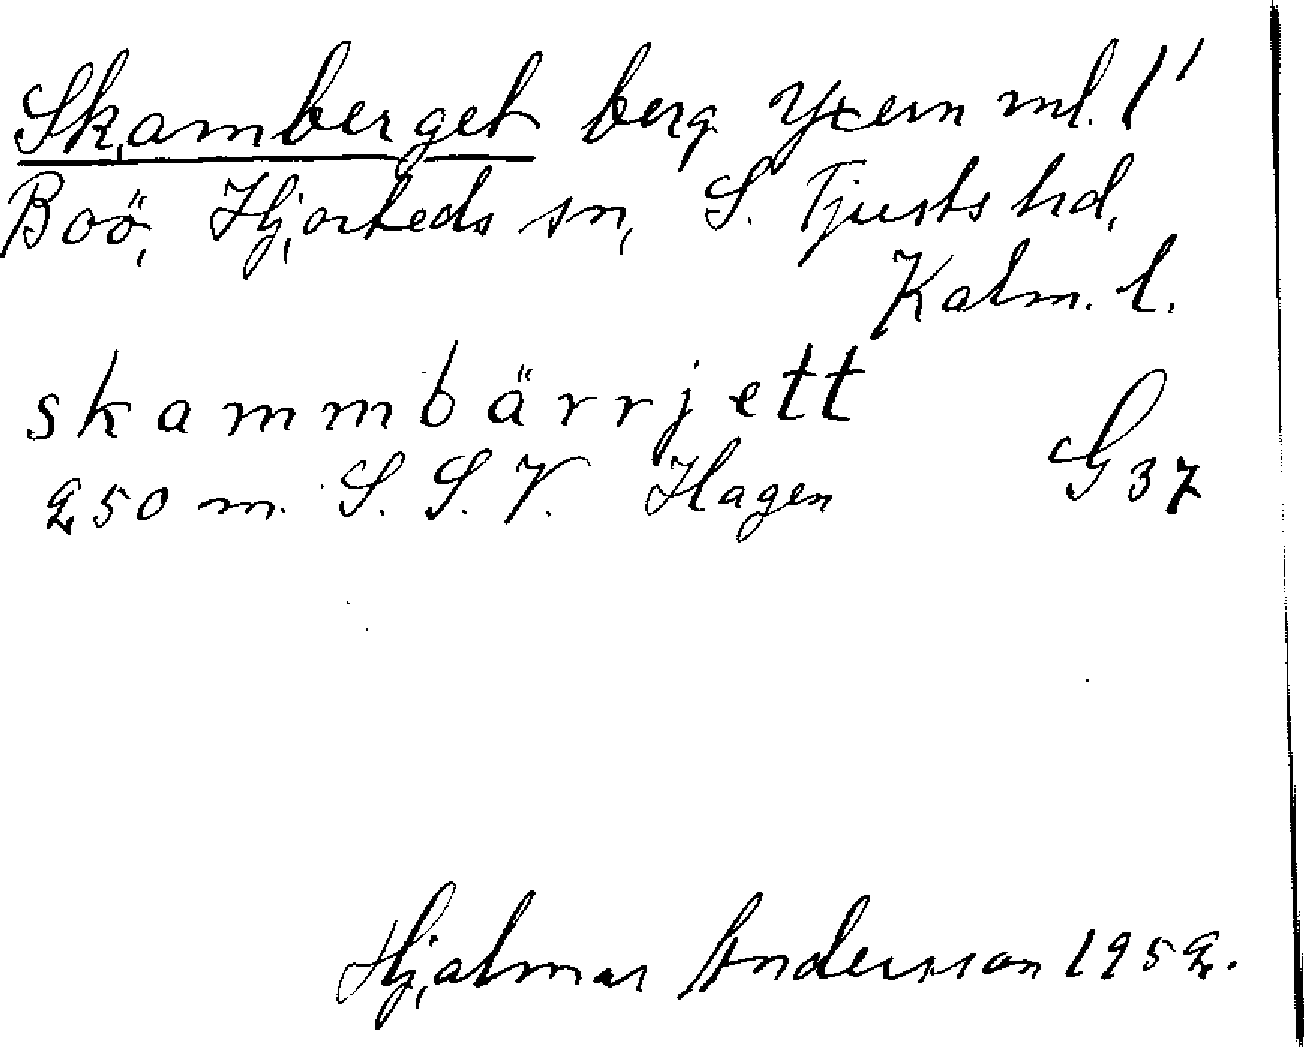 Skamberget berg Yxern ml. 1'
Boö, Hjorteds sn, S. Tjusts hd,
Kalm. l.
skammbärrjett
250 m. S. S. V. Hagen G37
Hjalmar Andersson 1952.